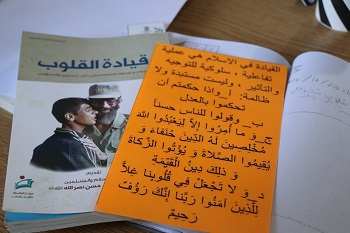 قيادة القلوب
تقديم
حسن نصر الله
القيادة في الاسلام هي عملية
تفاعلية ، سلوكية للتوجيه
والتأثير ، وليست مستبدة ولا
ظالمة: أ _ وإذا حكمتم أن
تحكموا بالعدل
ب_ وقولوا للناس حسناً
ج_ وَ مَا أُمِرُوا إِلَّا لِيَعْبُدُوا اللَّهَ
مُخْلِصِينَ لَهُ الدِّينَ حُنَفَاءَ وَ
يُقِيمُوا الصَّلَاةَ وَ يُؤْتُوا الزَّكَاةَ
وَ ذَلِكَ دِينُ الْقَيِّمَةِ
د_ وَ لَا تَجْعَلْ فِي قُلُوبِنَا غِلّاً
لِلَّذِينَ آمَنُوا رَبَّنَا إِنَّكَ رَؤُفٌ
رَحِيمٌ